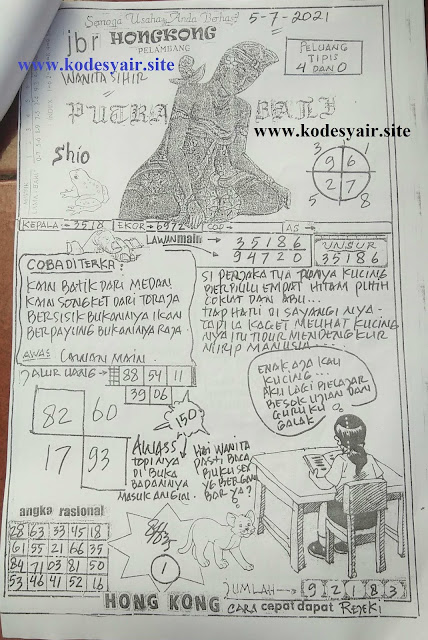 Semoga Usaha Anda Berhasil
5-7-2021
jbr HONGKONG
PELAMBANG
www.kodesyair.site
WANITA SIHIR
PELUANG
TIPIS
4 DAN 0
PUTRA BALI
www.kodesyair.site
Shio
3 1
9 6
2 7
5 8
KEPALA 3518 EKOR 6972 COP AS
LAWAN main 35186
94720
UNSUR
35186
COBA DITERKA:
KAIN BATIK DARI MEDAN
KAIN SONGKET DARI TORAJA
BERSISIK BUKANNYA IKAN
BERPAYUNG BUKANNYA RAJA.
AWAS LAWAN MAIN.
SI PENJAKA TUA PUNYA KUCING
BERBULU EMPAT HITAM PUTIH
COKLAT DAN ABU...
TIAP HARI DI SAYANGI NYA.
TAPI IA KAGET MELIHAT KUCING
NYA ITU TIDUR MENDENGKUR
MIRIP MANUSIA
JALUR UANG 88 54 11
39 06
82 60
17 93
150
ENAK AJA KAU
KUCING...
AKU LAGI BELAJAR
BESOK UJIAN DAN
GURUKU
GALAK
AWASS
TOPINYA
DI BUKA
BADANNYA
MASUK ANGIN.
HAI WANITA
PASTI BACA
BUKU SEX
YG BERGAM
BAR YA?
angka rasional
28 63 33 45 18
61 55 21 66 35
84 71 03 81 50
53 46 41 52 16
1
JUMLAH 9 2 1 8 3
HONG KONG CARA cepat dapat REJEKI